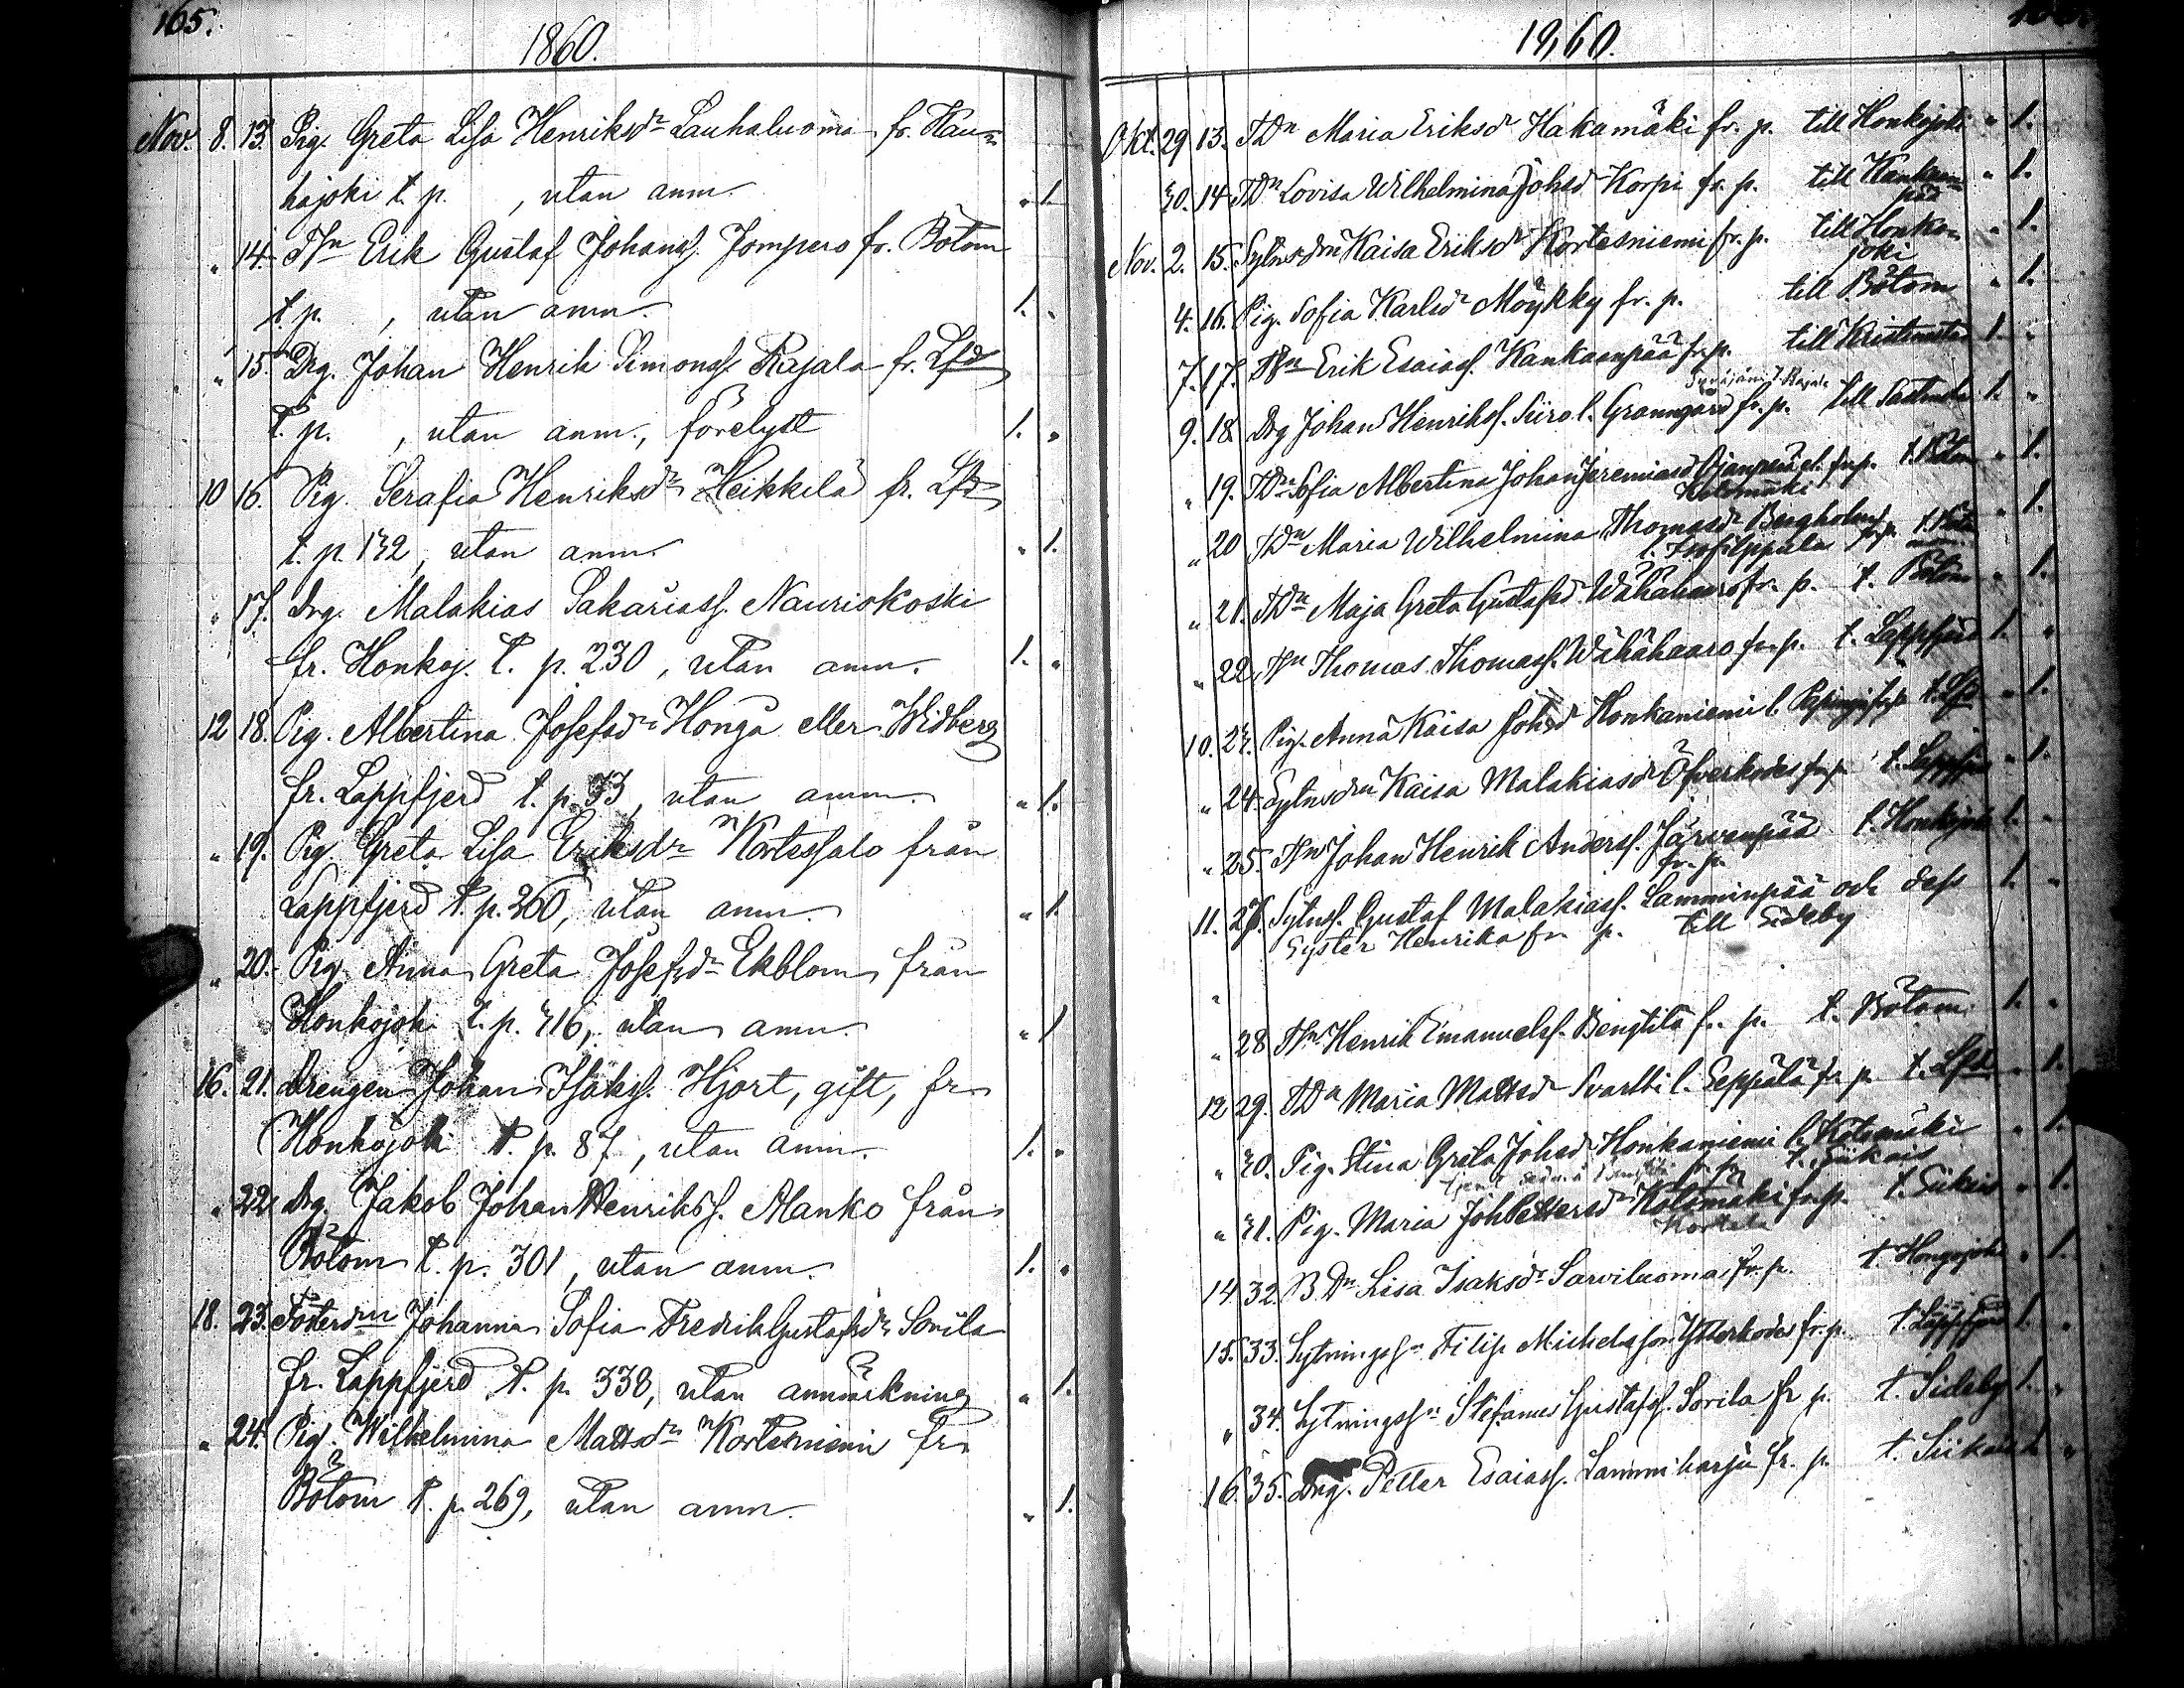 165.
1860.
Nov. 8. 13. Pig. Greta Lisa Henriksdr Lauhaluoma fr. Kau=
hajoki t. p. , utan anm. " 1.
" 14. TSn Erik Gustaf Johanss. Jompero fr. Bötom
t. p. , utan anm. 1. "
" 15. Drg. Johan Henrik Simonss. Rajala fr. Lfd
t. p. , utan anm., förelyst 1. "
10 16. Pig. Serafia Henriksdr Heikkilä fr. Lfd
t. p. 132, utan anm. " 1.
" 17. Drg. Malakias Sakariass. Nauriskoski
fr. Honkoj. t. p. 230, utan anm. 1. "
12 18. Pig. Albertina Josefsdr Honga eller Widberg
fr. Lappfjerd t. p. 33, utan anm. " 1.
" 19. Pig. Greta Lisa Eriksdr Kortessalo från
Lappfjerd t. p. 260, utan anm. " 1.
" 20. Pig. Anna Greta Josefsdr Ekblom från
Honkojoki t. p. 416, utan anm. " 1
16. 21. Drengen Johan Isakss. Hjort, gift, fr
Honkojoki t. p. 87, utan anm. 1. "
" 22 Drg. Jakob Johan Henrikss. Manko från
Bötom t. p. 301, utan anm. 1. "
18. 23. Fosterdrn Johanna Sofia Fredrik Gustafsdr Sorila
fr. Lappfjerd t. p. 338, utan anmärkning " 1.
" 24. Pig. Wilhelmina Mattsdr Kortesniemi fr
Bötom t. p. 269, utan anm. " 1.
1860.
Okt. 29 13. TDn Maria Eriksdr Hakamäki fr. p. till Honkojoki " 1.
30. 14 TDn Lovisa Wilhelmina Johsdr Korpi fr. p. till Kankaan= " 1.
pää
Nov. 2. 15. Sytnsdrn Kaisa Eriksdr Kortesniemi fr. p. till Honko= " 1.
joki
4. 16. Pig. Sofia Karlsdr Möykky fr. p. till Bötom " 1.
7. 17. TSn Erik Esaiass. Kankaanpää fr. p. till Kristinestad 1. "
9. 18. Drg Johan Henrikss. Siiro l. Granngård fr. p. till 1. "
" 19. TDn Sofia Albertina Johan Jeremiasdr fr. p. t. Bötom " 1.
Kotomäki
" 20 TDn Maria Wilhelmina Thomasdr Bergholm fr. p. " 1.
" 21. TDn Maja Greta Gustafsdr Wähähaaro fr. p. t. Bötom " 1.
" 22. TSn Thomas Thomass. Wähähaaro fr. p. t. Lappfjerd 1. "
10. 23. Pig. Anna Kaisa Johsdr Honkaniemi l. t. Lfd " 1.
" 24. Sytnsdrn Kaisa Malakiasdr Öfverkodes fr. p. t. Lappfjerd " 1.
" 25. TSn Johan Henrik Anderss. Järvenpää t. Honkojoki 1. "
fr. p.
11. 26. Sytnss. Gustaf Malakiass. Lamminpää och dess 1. "
Syster Henrika fr. p. till Sideby
" 28 TSn Henrik Emanuelss. Bengtilä fr. p. t. Bötom 1. "
12 29. TDn Maria Mattsdr Svartti l. Seppälä fr. p. t. Lfd " 1.
" 30. Pig. Stina Greta Johsdr Honkaniemi l. Kotomäki " 1.
fr. p. t. Siikais
" 31. Pig. Maria Joh Pettersdr Kotomäki fr. p. t. Siikais " 1.
14 32. BDn Lisa Isaksdr Sarviluoma fr. p. t. Hongojoki " 1.
15. 33. Sytningssn Filip Michelsson Ytterkodes fr. p. t. Lappfjerd 1. "
" 34. Sytningssn Stefanus Gustafss. Sorila fr p. t. Sideby 1. "
16. 35. Drg. Petter Esaiass. Lamminharju fr. p. t. Siikais 1. "